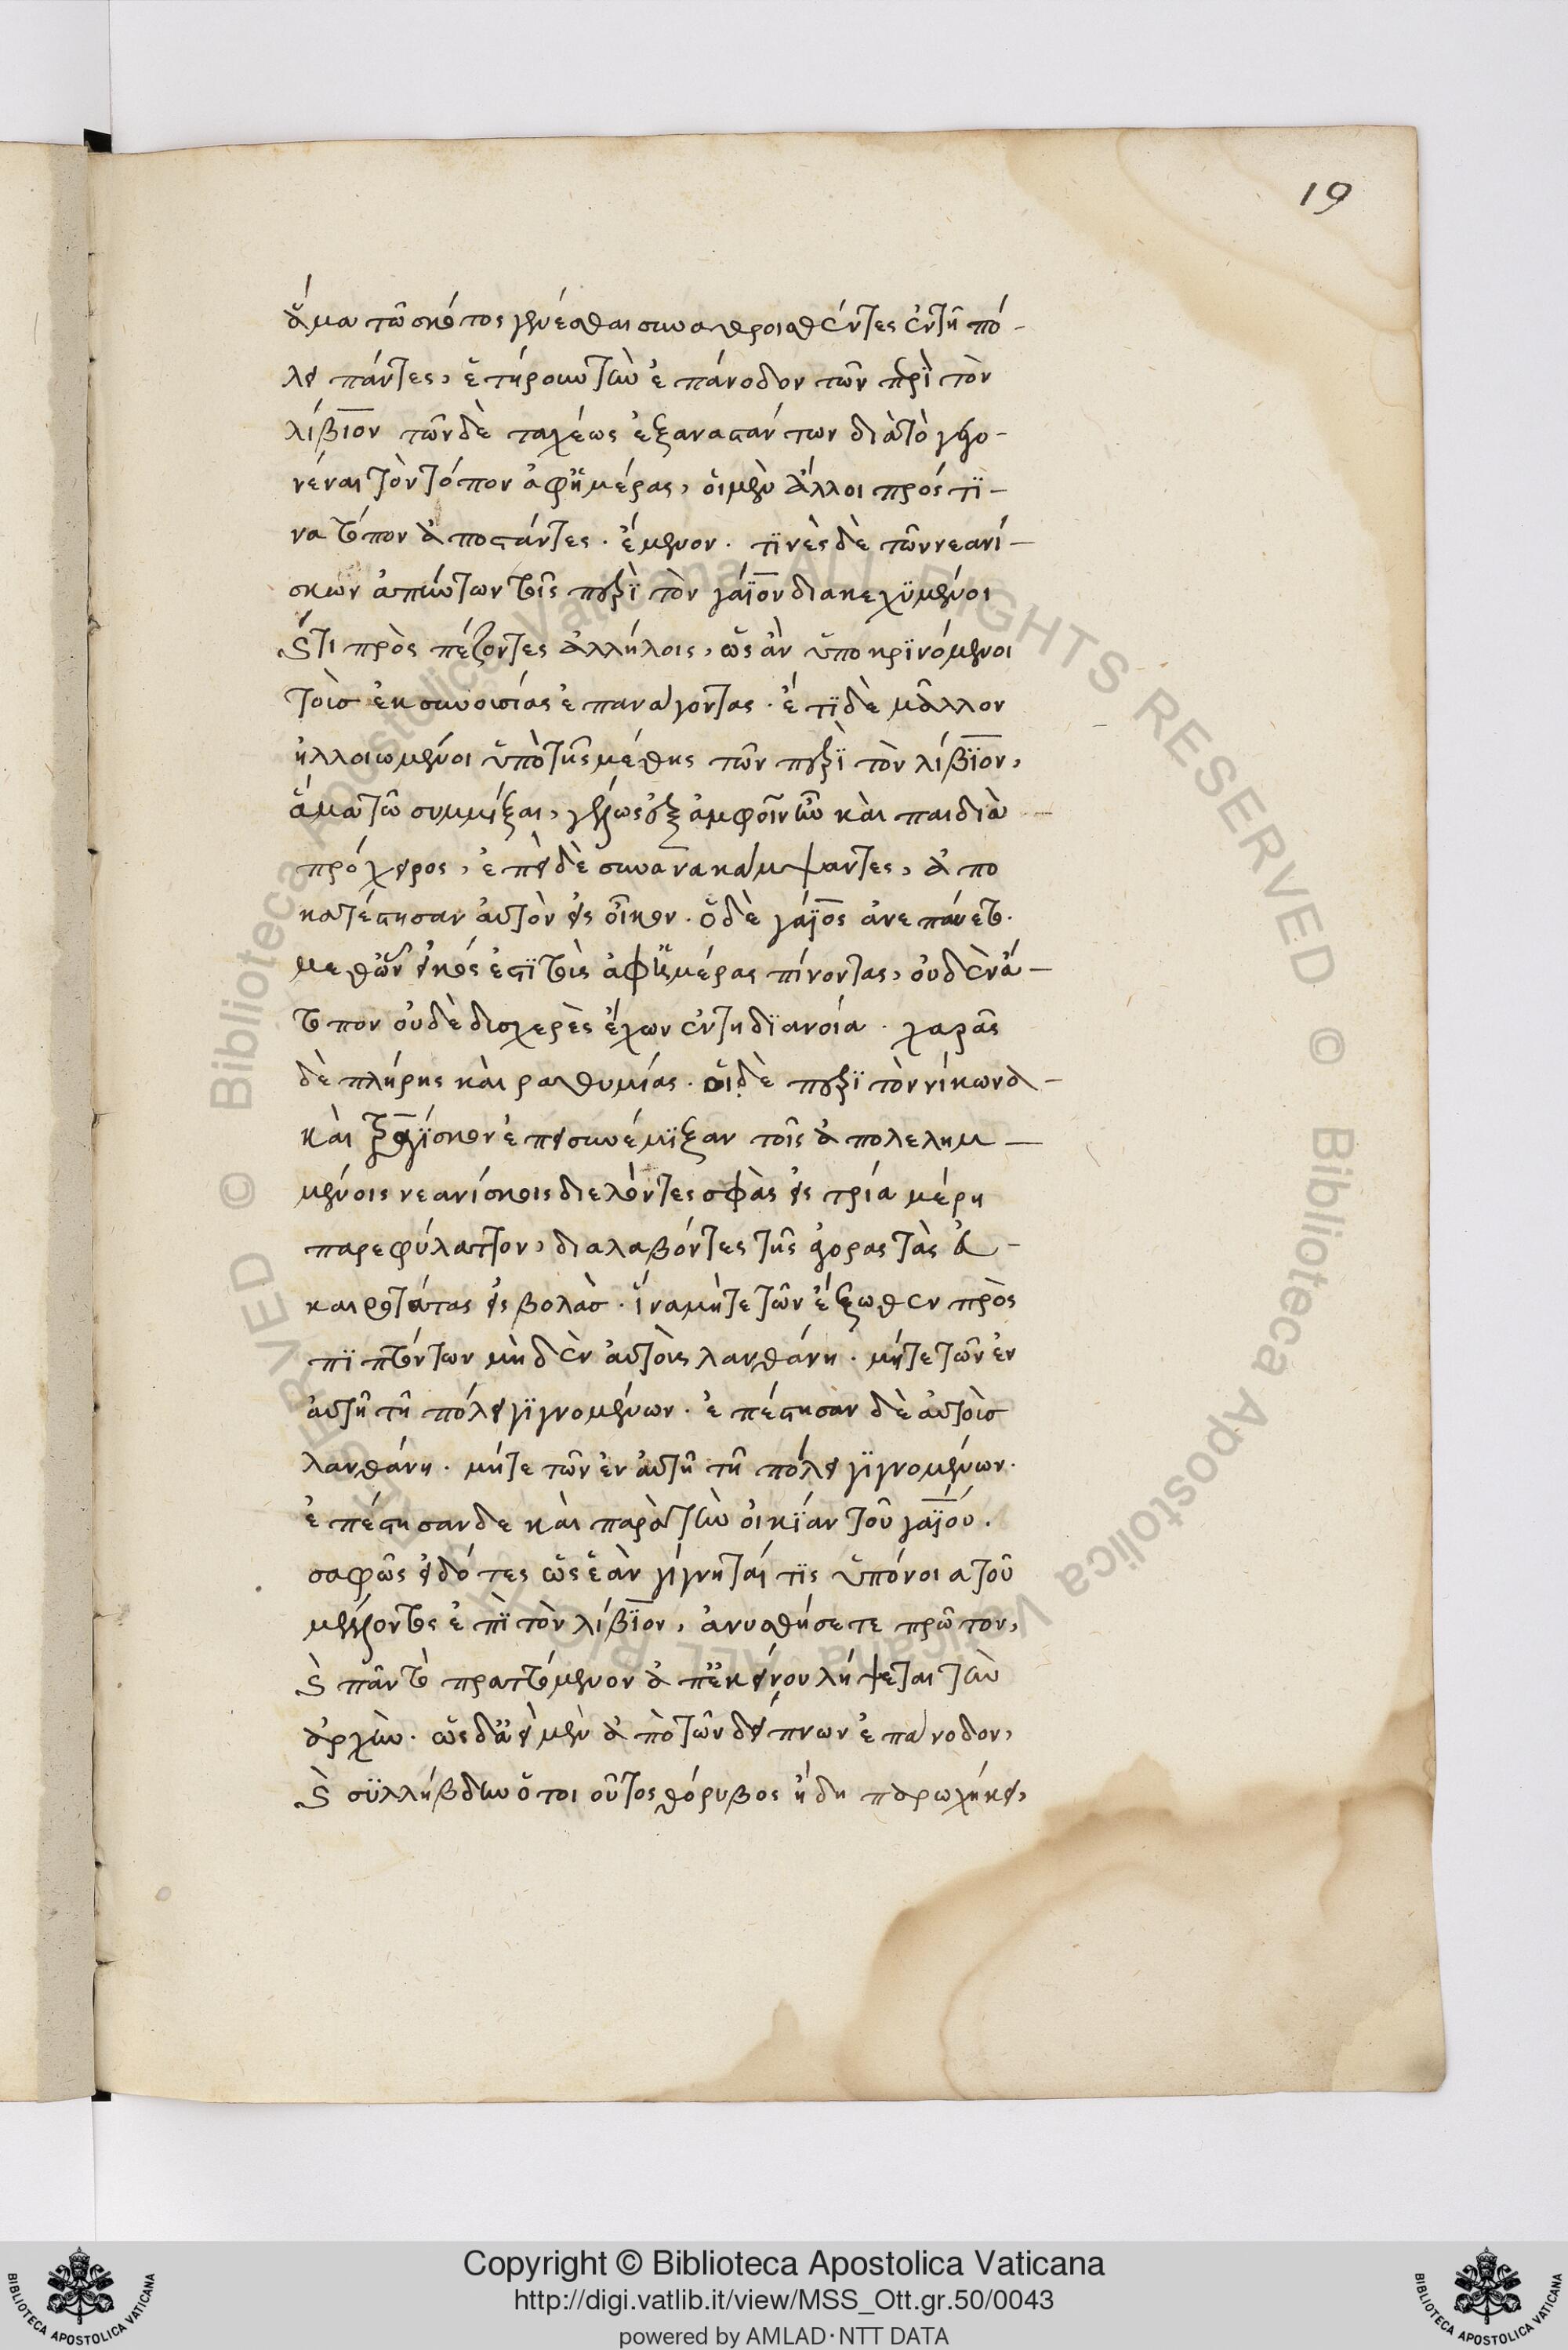 19
ἅμα τῶ σκότος γενέσθαι συναθροισθέντες ἐν τῆ πό-
λει πάντες, ἐτήρουν τὴν ἐπάνοδον τῶν περὶ τὸν
λίβιον τῶν δὲ ταχέως ἐξαναστάντων διὰ τὸ γεγο-
νέναι τὸν τόπον ἀφ' ἡμέρας, οἱ μὲν ἄλλοι πρός τϊ-
να τόπον ἀποστάντες. ἔμενον. τϊνὲς δὲ τῶν νεανί-
σκων ἀπήντων τοῖς περὶ τὸν γάϊον διακεχϋμένοι
ἔτι προσπέζοντες ἀλλήλοις, ὡς ἂν ὑποκρϊνόμενοι
τοὺσ ἐκ συνουσίας ἐπανάγοντας. ἔτϊ δὲ μᾶλλον
ἠλλοιωμένοι ὑπὸ τῆς μέθης τῶν περὶ τὸν λίβϊον,
ἅμα τῶ συμμίξαι, γέλως ἐξ ἀμφοῖν ἦν καὶ παιδιὰ
πρόχειρος, ἐπεὶ δὲ συνανακάμψαντες, ἀπο
κατέστησαν αὐτὸν εἰς οἶκον. ὁ δὲ γάϊος ἀνεπάυετο.
μεθῶν εἰκός ἐστϊ τοὺς ἀφ' ἡμέρας πίνοντας, οὐδὲν ἄ-
τοπον οὐδὲ δισχερὲς ἔχων ἐν τῆ δϊανοία. χαρᾶς
δὲ πλήρης καὶ ραθυμίας. οἱ δὲ περὶ τὸν νίκωνα
καὶ τραγΐσκον ἐπεὶ συνέμϊξαν τοῖς ἀπολελημ-
μένοις νεανίσκοις διελόντες σφὰς εἰς τρία μέρη
παρεφύλαττον, διαλαβόντες τῆς ἀγορας τὰς εὐ-
καιροτάτας εἰσβολὰσ. ἵνα μήτε τῶν ἔξωθεν προσ
πϊπτόντων μηδὲν αὐτοὺς λανθάνη. μήτε τῶν ἐν
αὐτῆ τῆ πόλει γϊγνομένων. ἐπέστησαν δὲ αὐτοὺσ
λανθάνη. μήτε τῶν ἐν αὐτῆ τῆ πόλει γϊγνομένων.
ἐπέστησαν δε καὶ παρὰ τὴν οἰκϊαν τοῦ γαΐου.
σαφῶς εἰδότες ὡς ἐὰν γίγνηταί τϊς ὑπόνοια τοῦ
μέλλοντος ἐπὶ τὸν λίβϊον, ἀνυσθήσετε πρῶτον,
καὶ πᾶν τὸ πραττόμενον ἀπ' ἐκείνου λήψεται τὴν
ἀρχὴν. ὡς δ' ἅεὶ μὲν ἀπὸ τῶν δείπνων ἐπάνοδον,
καὶ σϋλλήβδην ὅτοι οὗτος θόρυβος ἤδη παρωχήκει,
Copyright © Biblioteca Apostolica Vaticana
http://digi.vatlib.it/view/MSS_Ott.gr.50/0043
powered by AMLAD·NTT DATA